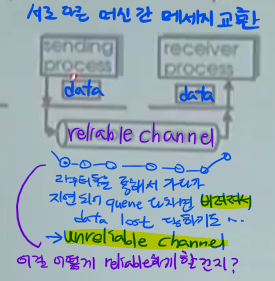 서로 다른 머신 간 메세지 교환
sending process
receiver process
data
data
reliable channel
라우터들을 통해서 가다가
지연되어 queue 다차면 버려져서
data lost 당하기도 ...
→ unreliable channel
이걸 어떻게 reliable하게 할 건지?